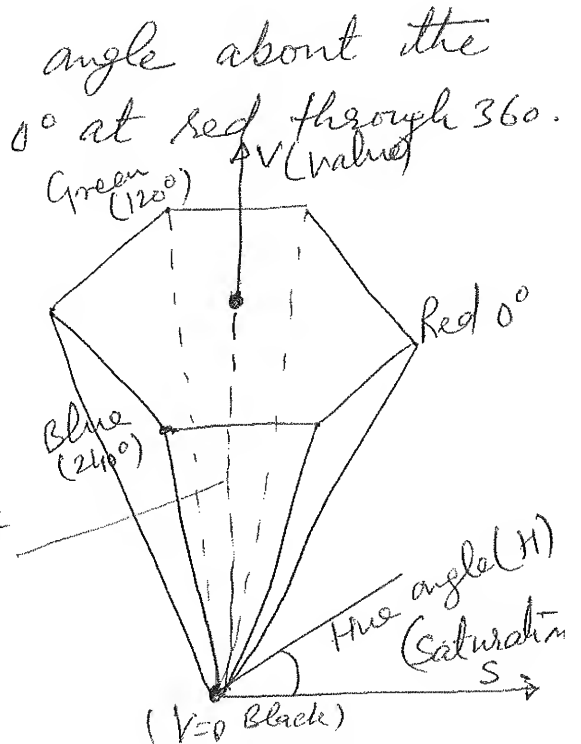 angle about the
0° at red through 360.
V(value)
Green
(120°)
Red 0°
Blue
(240°)
Hue angle(H)
(Saturation
S
(V=0 Black)